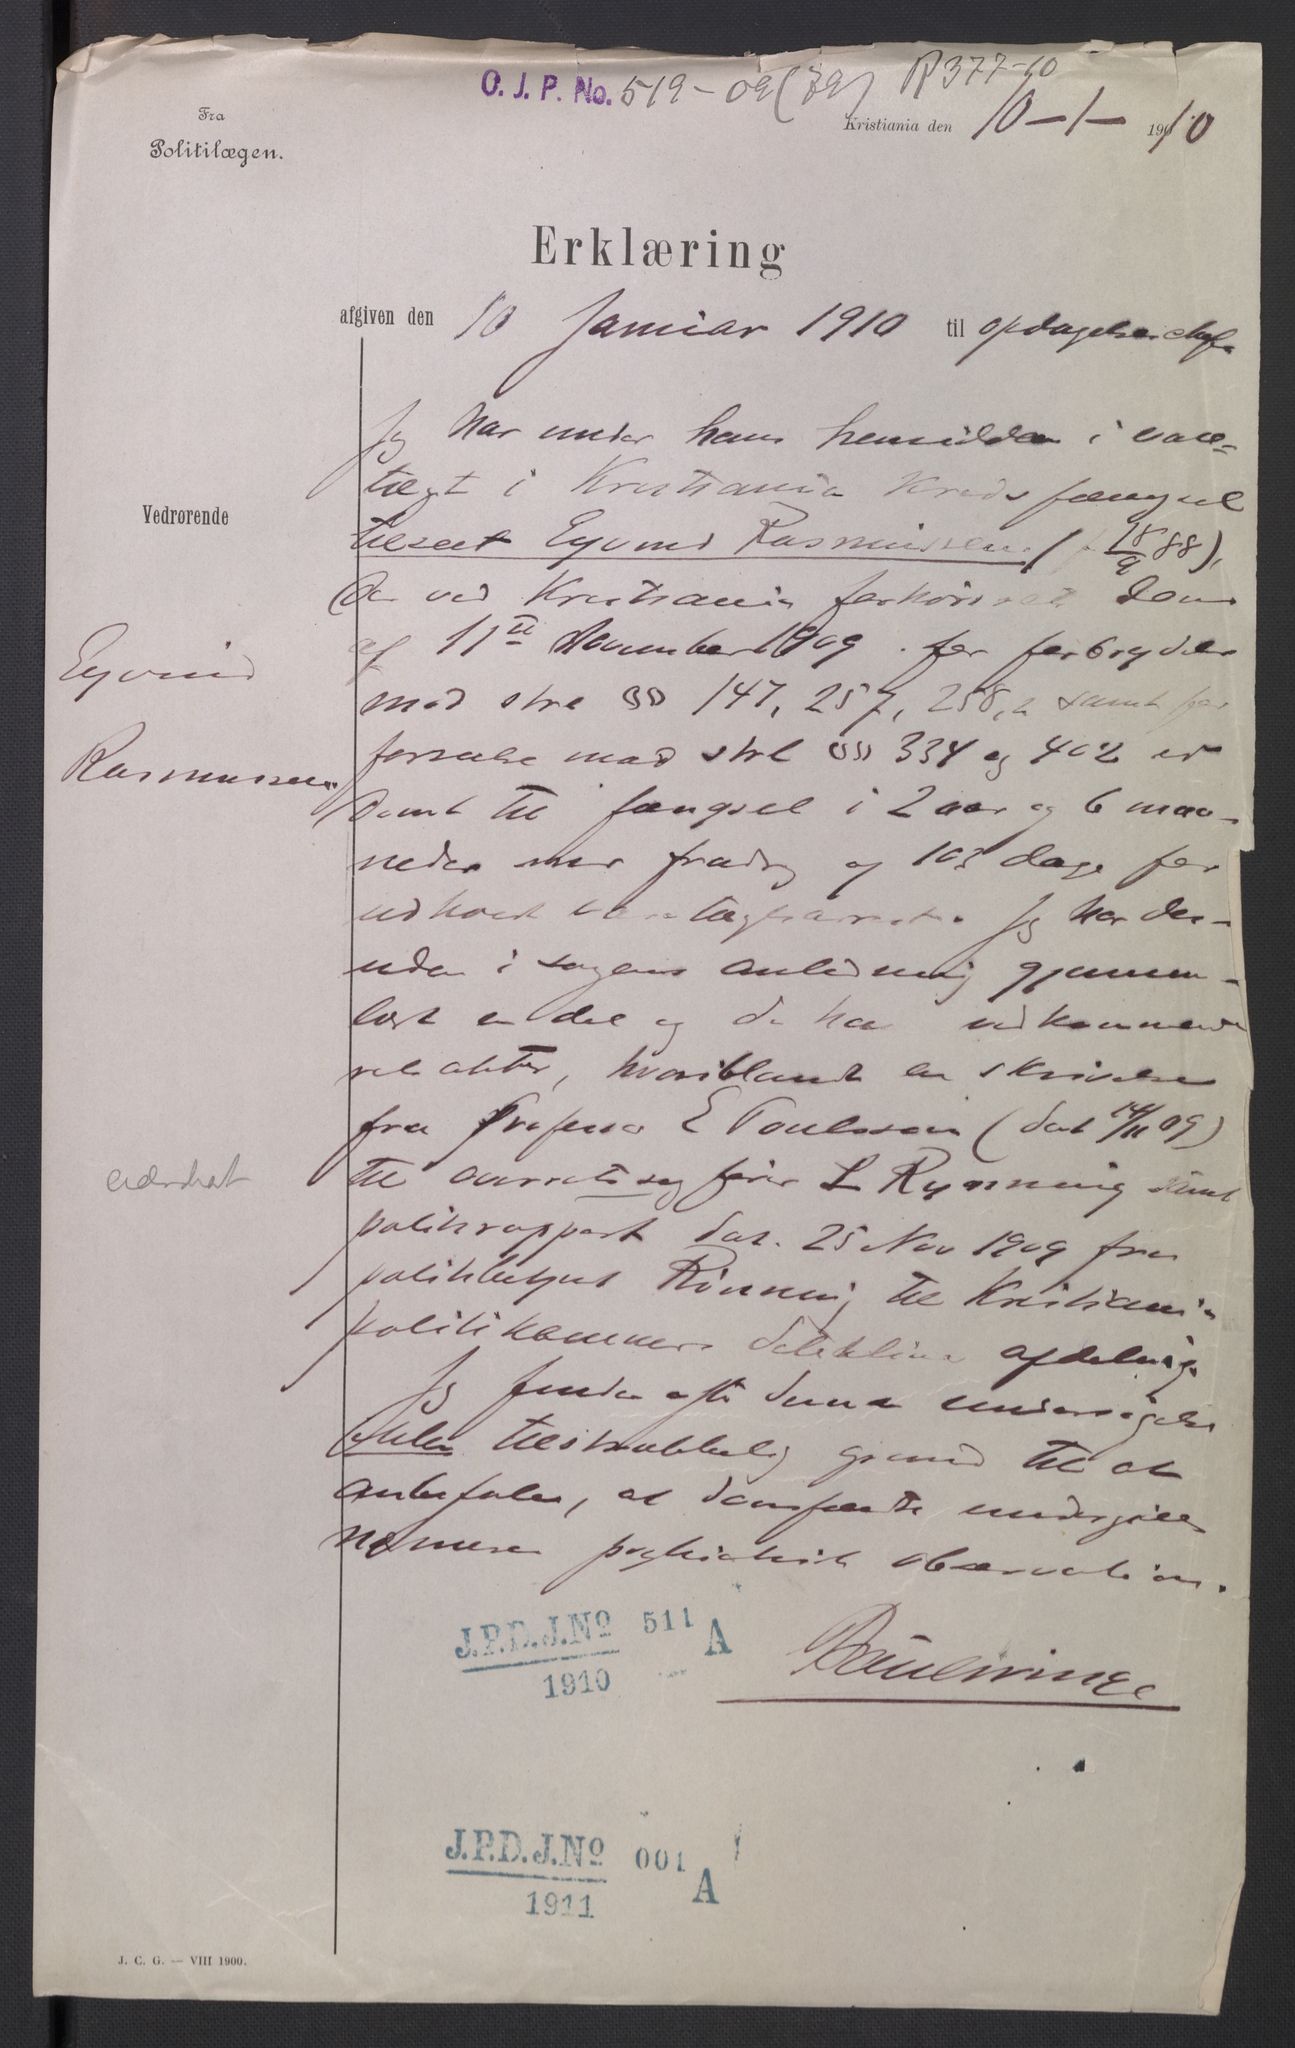 O. J. P. No. 519-09 (79) P 377-10
Fra
Politilægen.
Kristiania den 10-1-1910
Erklæring
afgiven den 10 Januar 1910 til opdagelseschefen
Jeg har under hans hensidden i vare-
tægt i Kristiania Kredsfængsel
tilseet Eyvind Rasmussen (f 18/9 88),
der ved Kristiania forhørsrets dom
af 11te December 1909 for forbrydelse
mod strl §§ 147, 257, 258, 2 samt for
forseelse mod strl §§ 334 og 402 er
dømt til fængsel i 2 aar og 6 maa-
neder med fradrag af 103 dage for
udholdt varetægtsarrest. Jeg har des-
uden i sagens anledning gjennem-
læst en del og deraf vedkommende
akter, hvoriblandt en skrivelse
fra Professor E Poulsson (dat 14/11 09)
til overretssagfører L Rynning samt
politirapport dat. 25 Nov 1909 fra
politibetjent Rønning til Kristiania
politikammers detektive afdeling.
Jeg finder efter denne undersøgelse
tilstrækkelig grund til at
anbefale, at domfældte undergives
nærmere psykiatrisk observation.
Paul Winge
Vedrørende
Eyvind
Rasmussen
J.P.D.J.No 511 A
1910
J.P.D.J.No 001 A
1911
J. C. G. — VIII 1900.